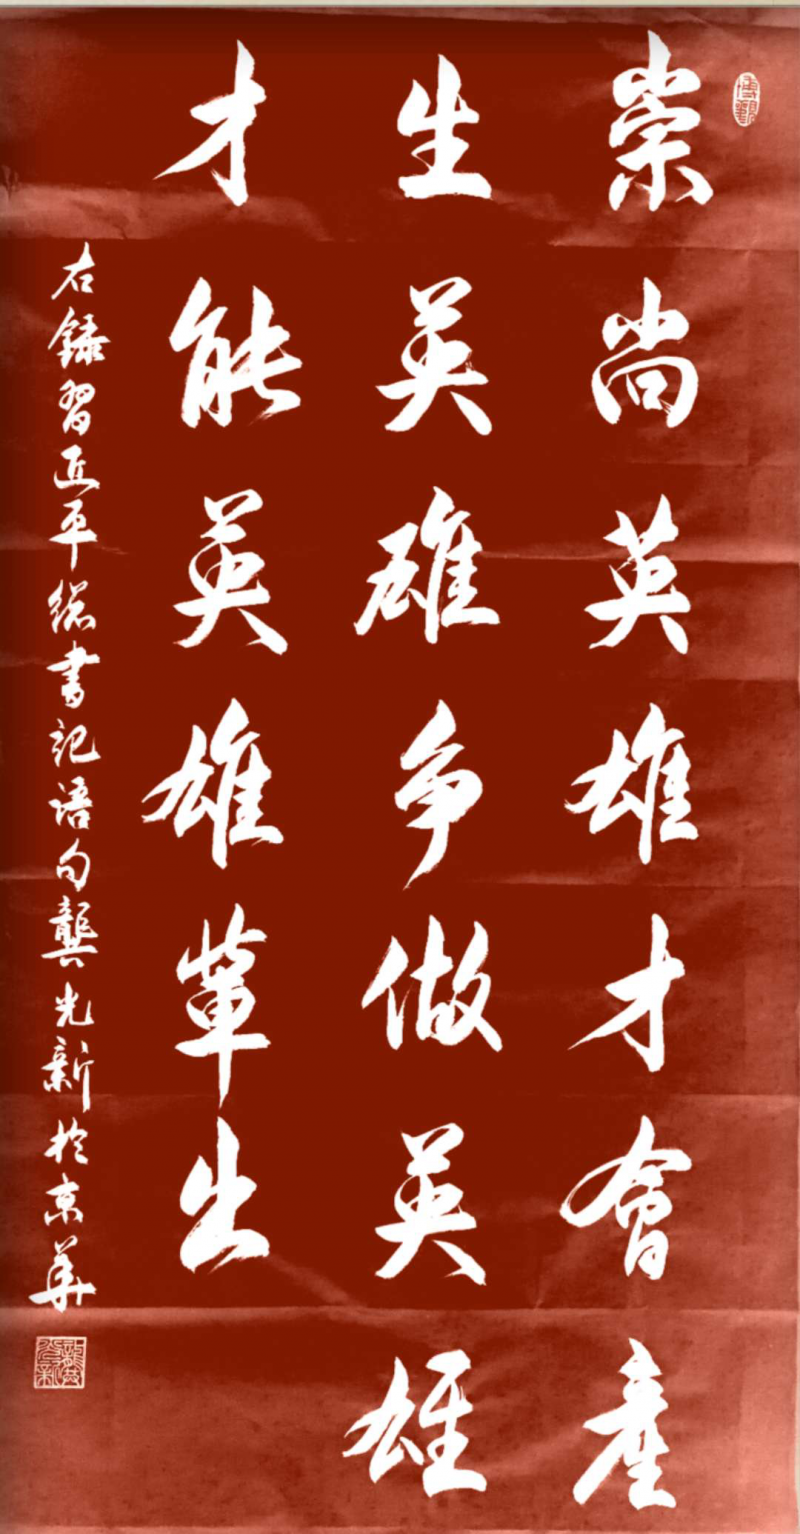 崇尚英雄才會產
生英雄争做英雄
才能英雄輩出
右錄習近平總書記語句龔光新於京華
博觀
龔光新